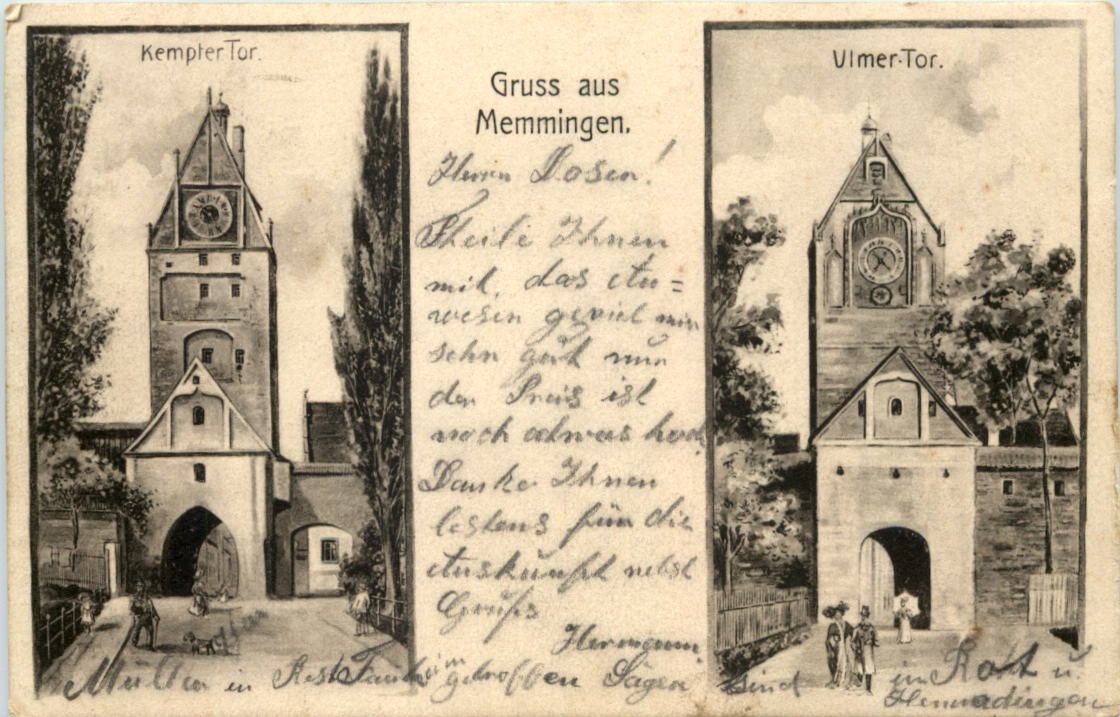 Kempter Tor.
Gruss aus
Memmingen.
Ulmer-Tor.
Herrn Dosen!
Theile Ihnen
mit, das An=
wesen geviel mir
sehr gut nur
der Preis ist
noch edwas hoch
Danke Ihnen
bestens für die
Auskunft nebst
Gruß
Hermann
Müller in Rest getroffen Sägen sind im Rott u.